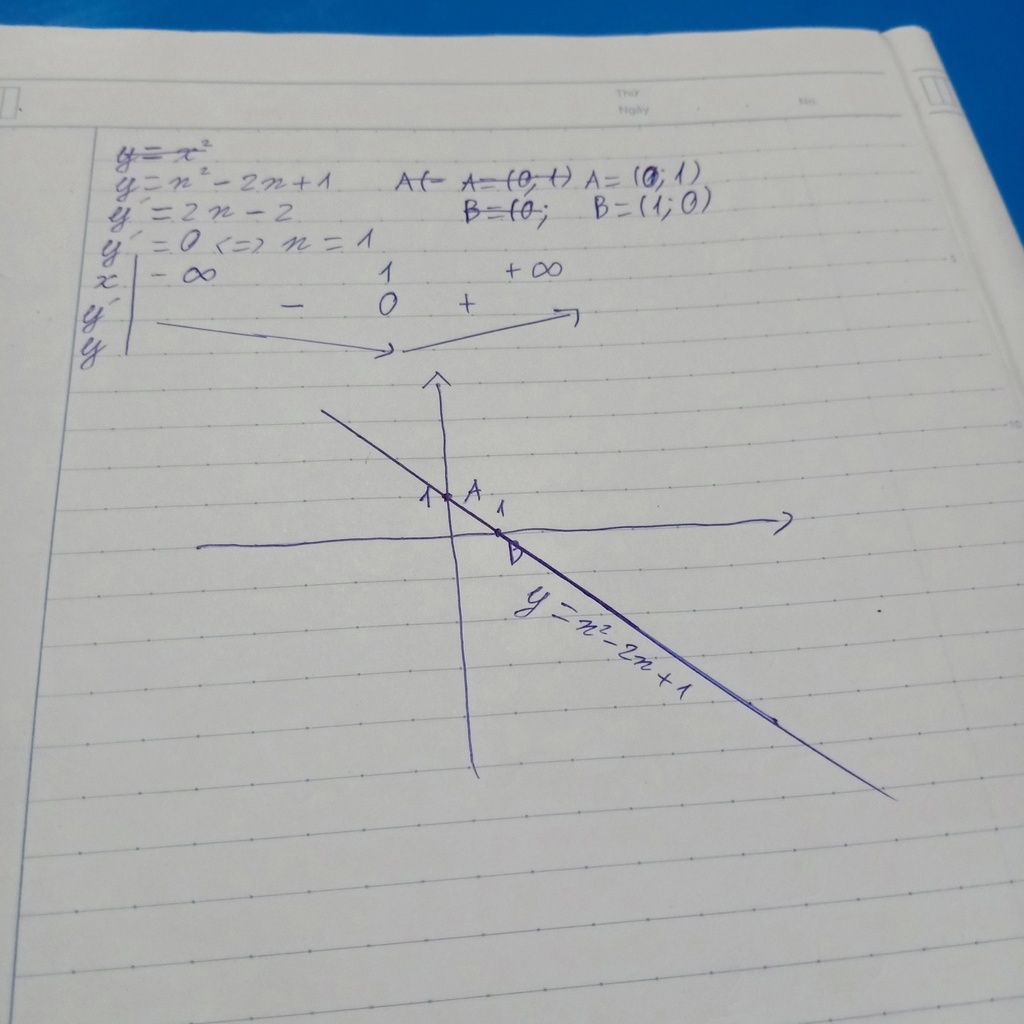 Thứ
Ngày No.
y = x²
y = x² - 2x + 1 A(- A = (0, 1) A = (0; 1)
y' = 2x - 2 B = (0; B = (1; 0)
y' = 0 <=> x = 1
x - ∞ 1 + ∞
y' - 0 +
y
1 A
1
B
y = x² - 2x + 1